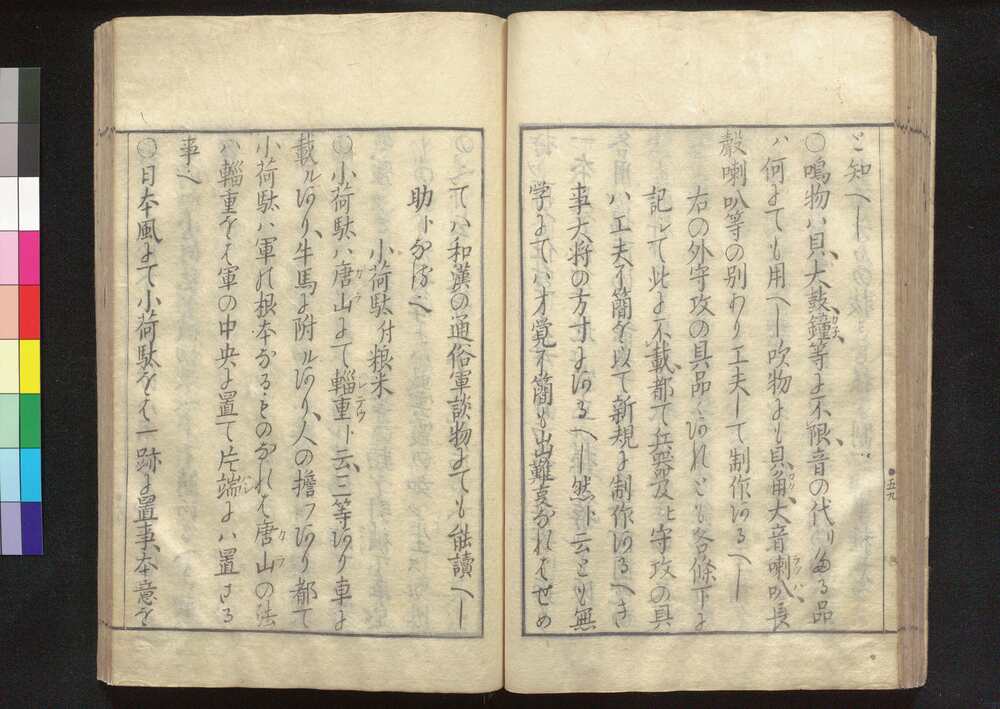 と知へし
〇鳴物ハ貝、太鼓、鐘等に不限、音の代りゐる品
ハ何にても用へし吹物にも貝、角、大音喇叭、長
聲喇叭等の別あり工夫して制作あるへし
右の外守攻の具品々あれとも各條下に
記して此に不載、都て兵器及ヒ守攻の具
ハ工夫了簡を以て新規に制作あるへき
事大将の方寸にあるへし然ト云とも無
学にてハ才覚了簡も出難きなれはせめ
てハ和漢の通俗軍談物にても能讀へし
助トなるへし
小荷駄付粮米
〇小荷駄ハ唐山にて輜重ト云、三等あり車に
載ルあり、牛馬に附ルあり、人の擔フあり都て
小荷駄ハ軍の根本なるものなれは唐山の法
ハ輜重をは軍の中央に置て片端にハ置さる
事也
〇日本風にて小荷駄をは一跡に置事、本意を
五九